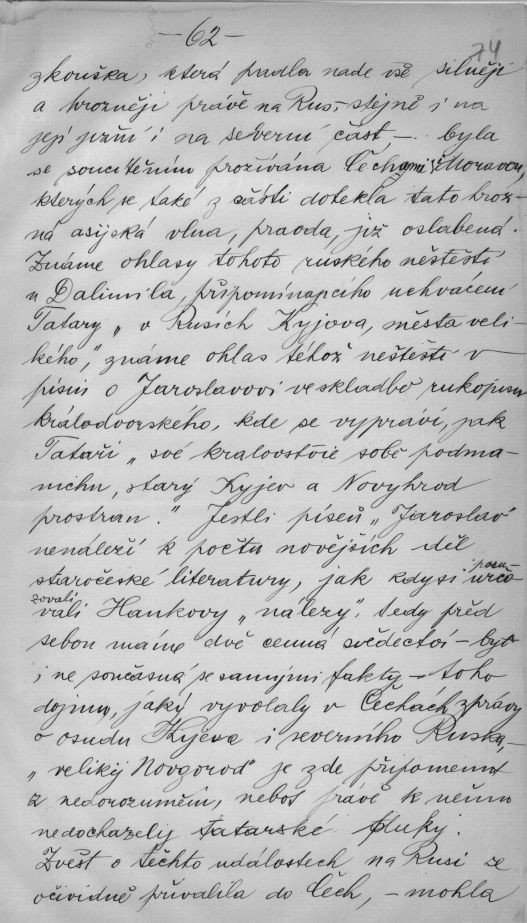 —62—
74
zkouška, která padla nade vše silněji
a hrozněji právě na Rus, – stejně i na
její jižní i na severní část – byla
se soucitěním prožívána Čechami i Moravou,
kterých se také z části dotekla tato hroz-
ná asijská vlna, pravda, již oslabená.
Známe ohlasy tohoto ruského neštěstí
u Dalimila, připomínajícího uchvácení
Tatary „v Rusích Kyjova, města veli
kého," známe ohlas téhož neštěstí v
písni o Jaroslavovi ve skladbě rukopisu
královédvorského, kde se vypráví, jak
Tataři „své kralovstvie sobě podma-
nichu, starý Kyjev a Novyhrod
prostran." Jestli píseň „Jaroslav"
nenáleží k počtu novějších děl
staročeské literatury, jak kdysi posu-
zovali Hankovy „nálezy", tedy před
sebou máme dvě cenná svědectví – byť
i ne současná se samými fakty – toho
dojmu, jaký vyvolaly v Čechách zprávy
o osudu Kyjeva i severního Ruska, –
„veliký Novgorod" je zde připomenut
z nedorozumění, neboť právě k němu
nedocházely tatarské pluky.
Zvěst o těchto událostech na Rusi se
očividně přivalila do Čech, – mohla